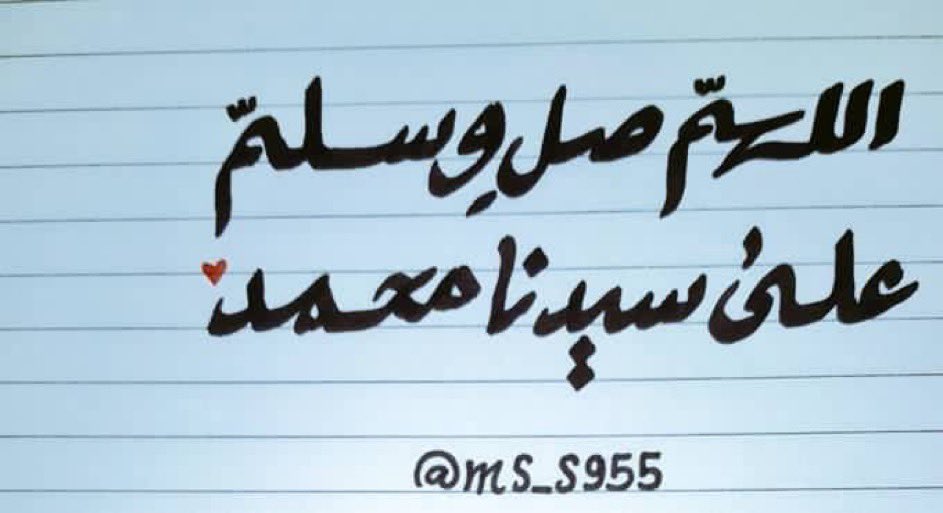 اللهمّ صل وسلمّ
علىٰ سيدنا محمد ❤
@ms_s955